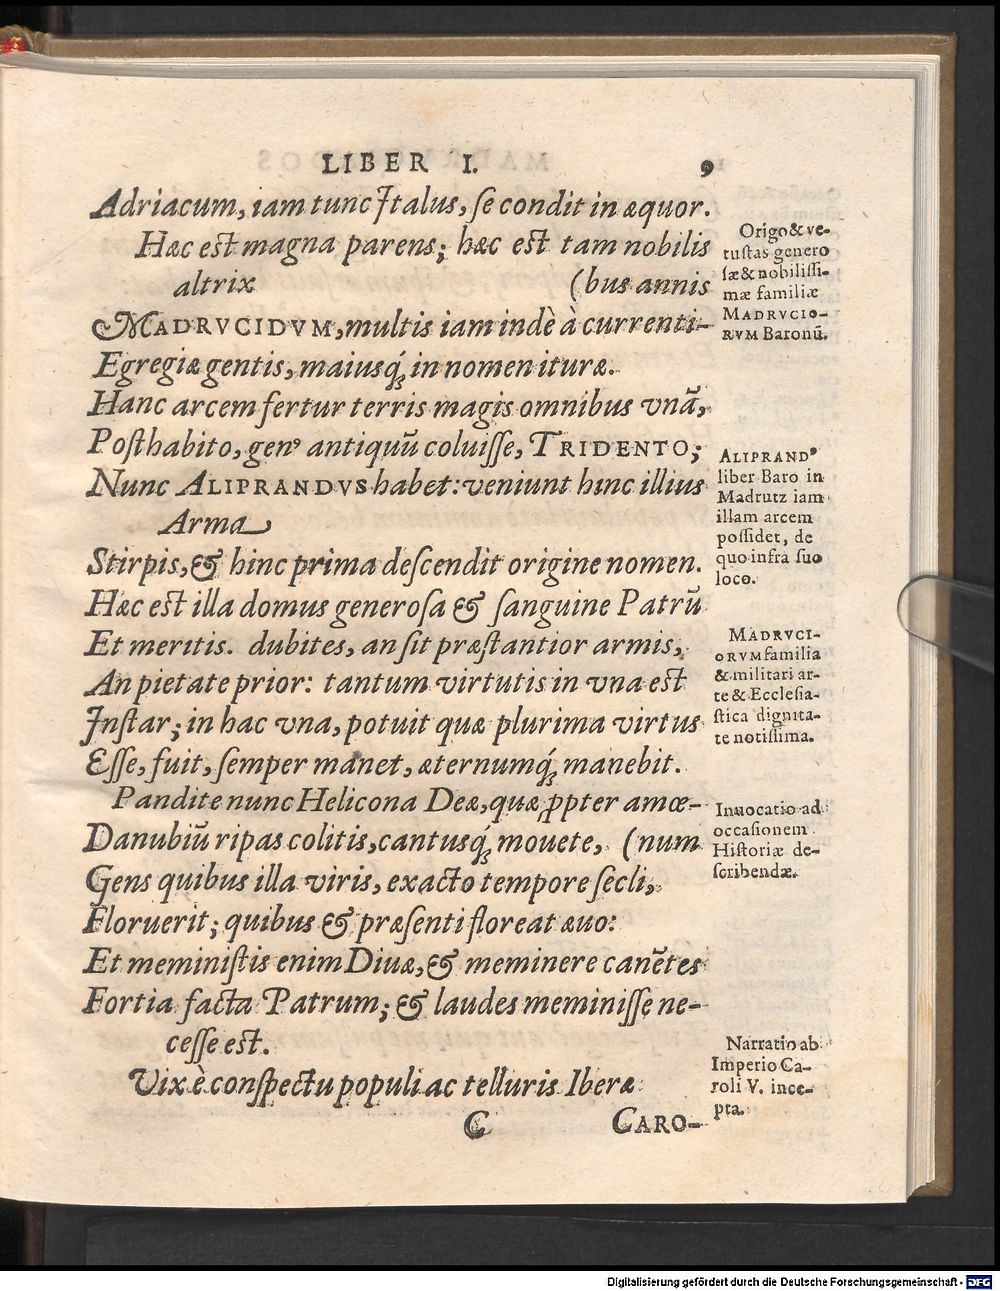 LIBER I. 9
Adriacum, iam tunc Italus, ſe condit in æquor.
Hæc eſt magna parens; hæc eſt tam nobilis
altrix (bus annis
MADRVCIDVM, multis iam indè à currenti-
Egregiæ gentis, maiusq́; in nomen ituræ.
Hanc arcem fertur terris magis omnibus vnã,
Poſthabito, genꝰ antiquũ coluiſſe, TRIDENTO;
Nunc ALIPRANDVS habet: veniunt hinc illius
Arma
Stirpis, & hinc prima deſcendit origine nomen.
Hæc eſt illa domus generoſa & ſanguine Patrũ
Et meritis. dubites, an ſit præſtantior armis,
An pietate prior: tantum virtutis in vna eſt
Inſtar; in hac vna, potuit quæ plurima virtus
Eſſe, fuit, ſemper manet, æternumq́; manebit.
Pandite nunc Helicona Deæ, quæ ꝓpter amœ-
Danubiũ ripas colitis, cantusq́; mouete, (num
Gens quibus illa viris, exacto tempore ſecli,
Floruerit; quibus & præſenti floreat æuo:
Et meminiſtis enim Diuæ, & meminere canẽtes
Fortia facta Patrum; & laudes meminiſſe ne-
ceſſe eſt.
Vix è conſpectu populi ac telluris Iberæ
C CARO-
Origo & ve-
tuſtas genero
ſæ & nobiliſſi-
mæ familiæ
MADRVCIO-
RVM Baronũ.
ALIPRANDꝰ
liber Baro in
Madrutz iam
illam arcem
poſſidet, de
quo infra ſuo
loco.
MADRVCI-
ORVM familia
& militari ar-
te & Eccleſia-
ſtica dignita-
te notiſſima.
Inuocatio ad
occaſionem
Hiſtoriæ de-
ſcribendæ.
Narratio ab
Imperio Ca-
roli V. ince-
pta.
Digitalisierung gefördert durch die Deutsche Forschungsgemeinschaft - DFG